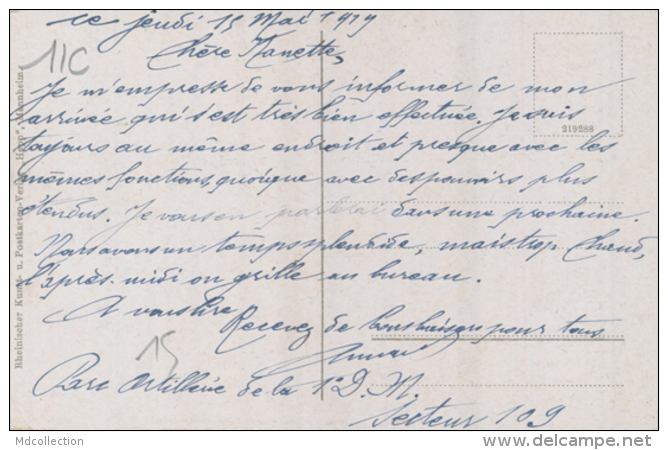 ce jeudi 15 Mai 1919
11C
Chère Nanette,
Je m'empresse de vous informer de mon
arrivée qui s'est très bien effectuée. Je suis
toujours au même endroit et presque avec les
mêmes fonctions, quoique avec des pouvoirs plus
étendus. Je vous en parlerai dans une prochaine.
Nous avons un temps splendide, mais trop chaud,
l'après-midi on grille au bureau.
A vous lire
Recevez de bons baisers pour tous
15
Parc Artillerie de la 1e D. M.
Secteur 109
219288
Rheinischer Kunst- u. Postkarten-Verlag „Hapo", Mannheim.
Mdcollection
http://www.delcampe.net